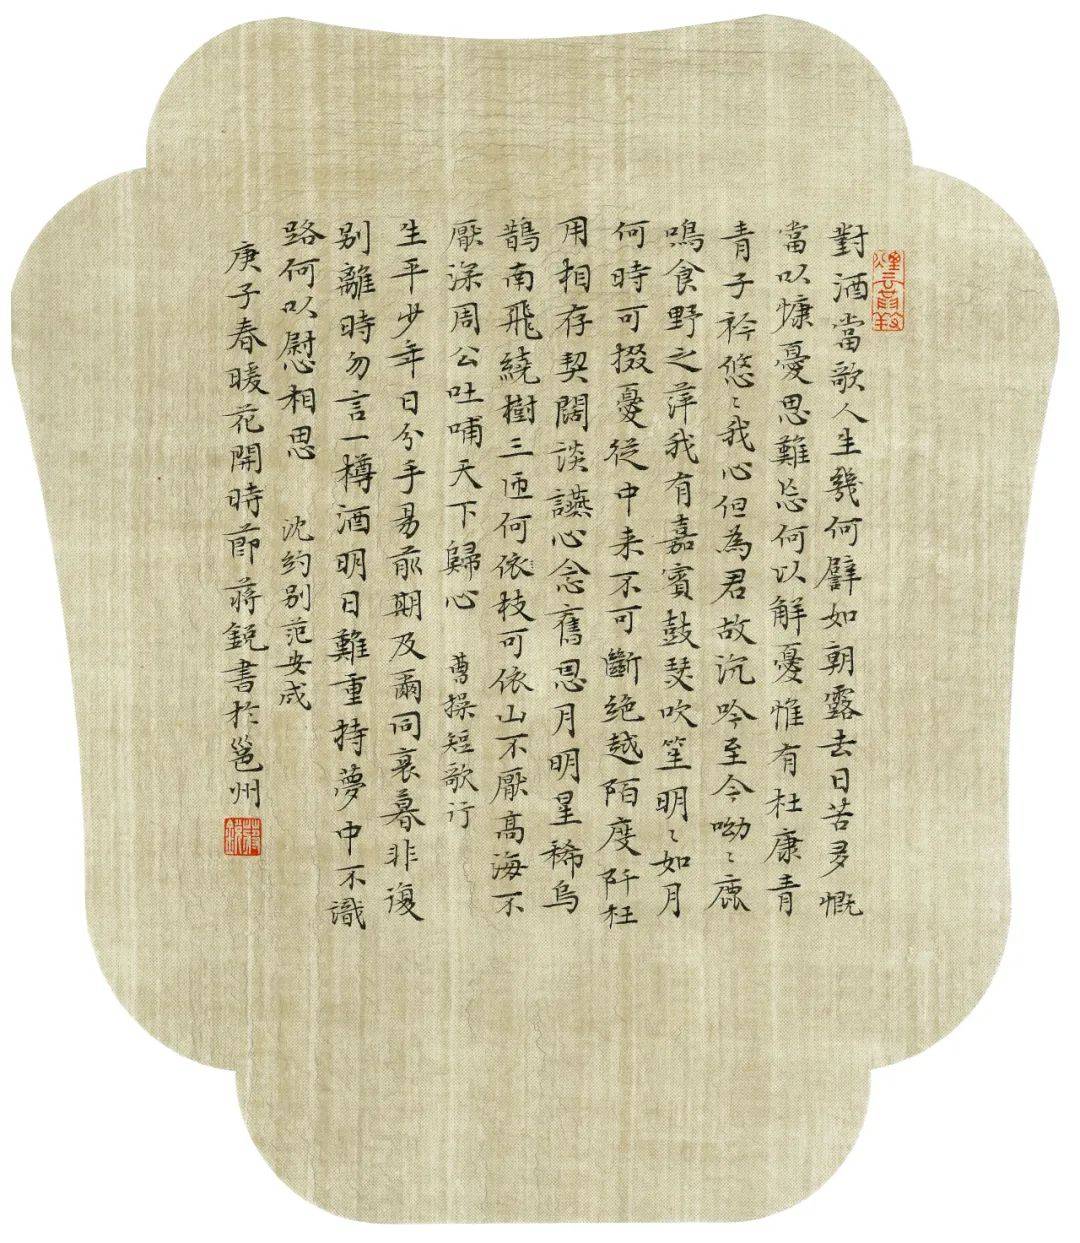 對酒當歌人生幾何譬如朝露去日苦多慨
當以慷憂思難忘何以解憂惟有杜康青
青子衿悠〻我心但為君故沉吟至今呦〻鹿
鳴食野之萍我有嘉賓鼓瑟吹笙明〻如月
何時可掇憂從中来不可斷絶越陌度阡枉
用相存契闊談讌心念舊恩月明星稀烏
鵲南飛繞樹三匝何依枝可依山不厭高海不
厭深周公吐哺天下歸心 曹操短歌行
生平少年日分手易前期及爾同衰暮非復
别離時勿言一樽酒明日難重持夢中不識
路何以慰相思 沈約别范安成
庚子春暖花開時節蔣銳書於邕州
蔣銳